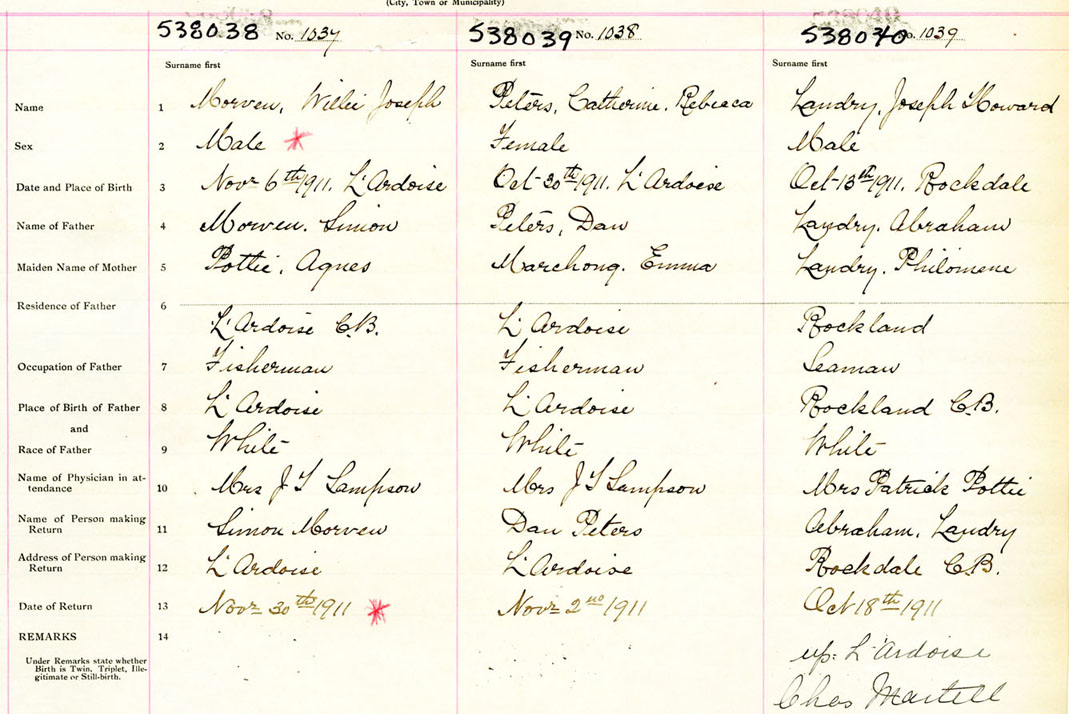 (City, Town or Municipality)
538038 No. 1037 538039 No. 1038 538040 No. 1039
Surname first Surname first Surname first
Name 1 Morven, Willie Joseph Peters, Catherine, Rebecca Landry, Joseph Howard
Sex 2 Male * Female Male
Date and Place of Birth 3 Nov 6th 1911. L'Ardoise Oct 30th 1911. L'Ardoise Oct 13th 1911. Rockdale
Name of Father 4 Morven. Simon Peters, Dan Landry. Abraham
Maiden Name of Mother 5 Pottie, Agnes Marchong. Emma Landry. Philomene
Residence of Father 6
L'Ardoise C.B. L'Ardoise Rockland
Occupation of Father 7 Fisherman Fisherman Seaman
Place of Birth of Father 8 L'Ardoise L'Ardoise Rockland C.B.
and
Race of Father 9 White White White
Name of Physician in at-
tendance 10 Mrs J S Sampson Mrs J S Sampson Mrs Patrick Pottie
Name of Person making
Return 11 Simon Morven Dan Peters Abraham, Landry
Address of Person making
Return 12 L'Ardoise L'Ardoise Rockdale C.B.
Date of Return 13 Nov 30th 1911 * Nov 2nd 1911 Oct 18th 1911
REMARKS 14
Under Remarks state whether
Birth is Twin, Triplet, Ille-
gitimate or Still-birth.
L'Ardoise
Chas Martell